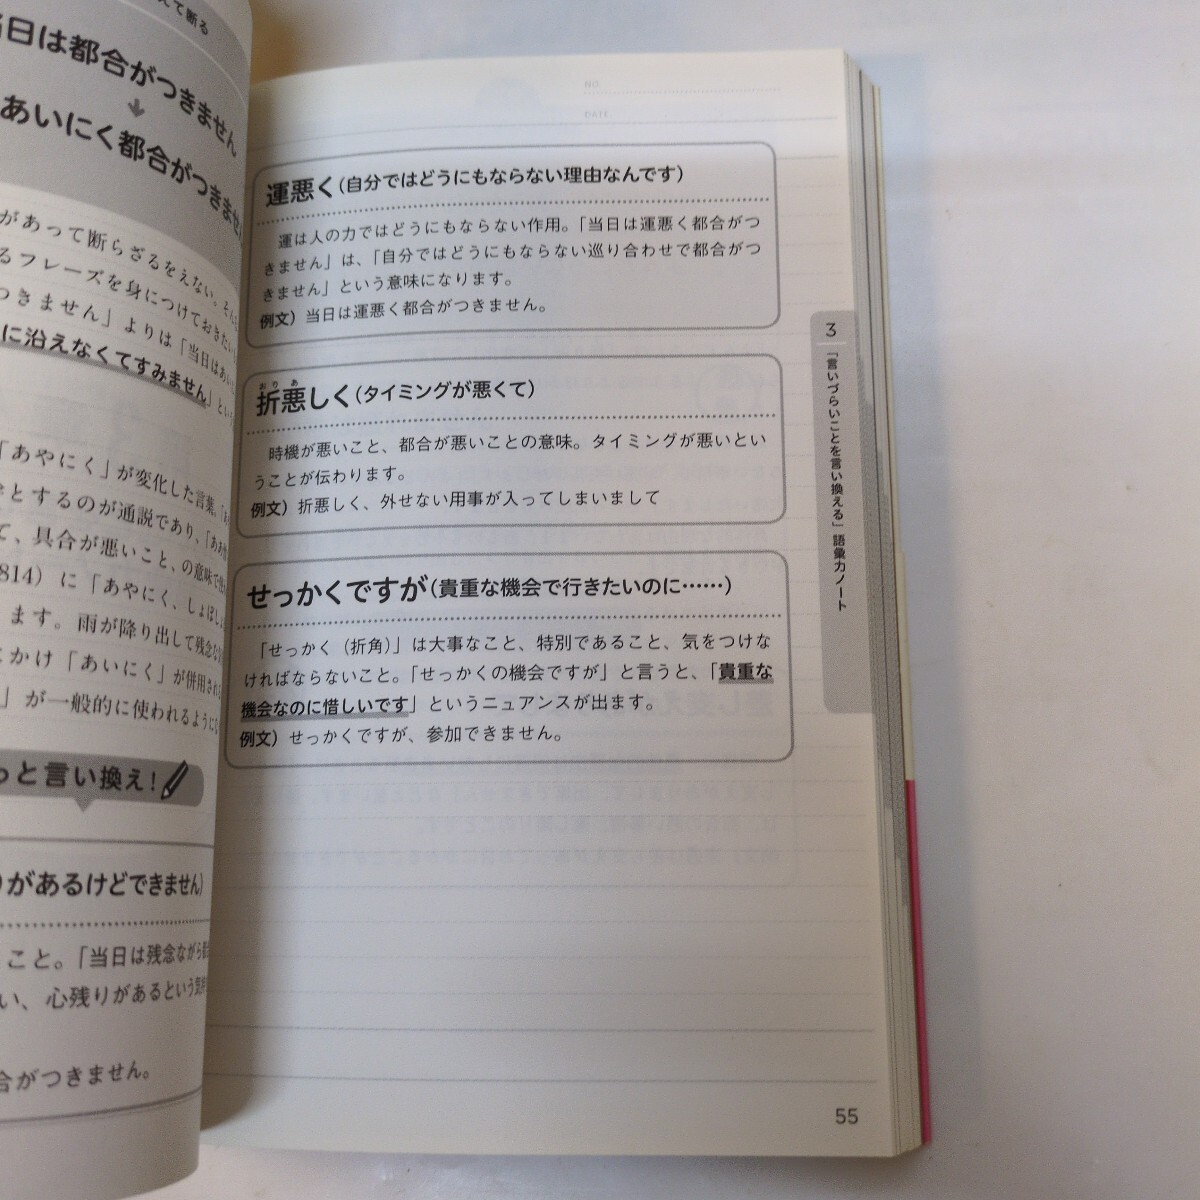 えて断る
当日は都合がつきません
あいにく都合がつきません
があって断らざるをえない。そん
るフレーズを身につけておきたい
つきません」よりは「当日はあい
に沿えなくてすみません」とい
「あやにく」が変化した言葉。
とするのが通説であり、「ああ
て、具合が悪いこと、の意味で
814）に「あやにく、しょぼしょ
ます。雨が降り出して残念な
かけ「あいにく」が併用され
」が一般的に使われるように
っと言い換え！
りがあるけどできません）
こと。「当日は残念ながら都
い、心残りがあるという気持
合がつきません。
運悪く（自分ではどうにもならない理由なんです）
運は人の力ではどうにもならない作用。「当日は運悪く都合がつ
きません」は、「自分ではどうにもならない巡り合わせで都合がつ
きません」という意味になります。
例文）当日は運悪く都合がつきません。
おりあ
折悪しく（タイミングが悪くて）
時機が悪いこと、都合が悪いことの意味。タイミングが悪いとい
うことが伝わります。
例文）折悪しく、外せない用事が入ってしまいまして
せっかくですが（貴重な機会で行きたいのに……）
「せっかく（折角）」は大事なこと、特別であること、気をつけな
ければならないこと。「せっかくの機会ですが」と言うと、「貴重な
機会なのに惜しいです」というニュアンスが出ます。
例文）せっかくですが、参加できません。
3
「言いづらいことを言い換える」語彙力ノート
55